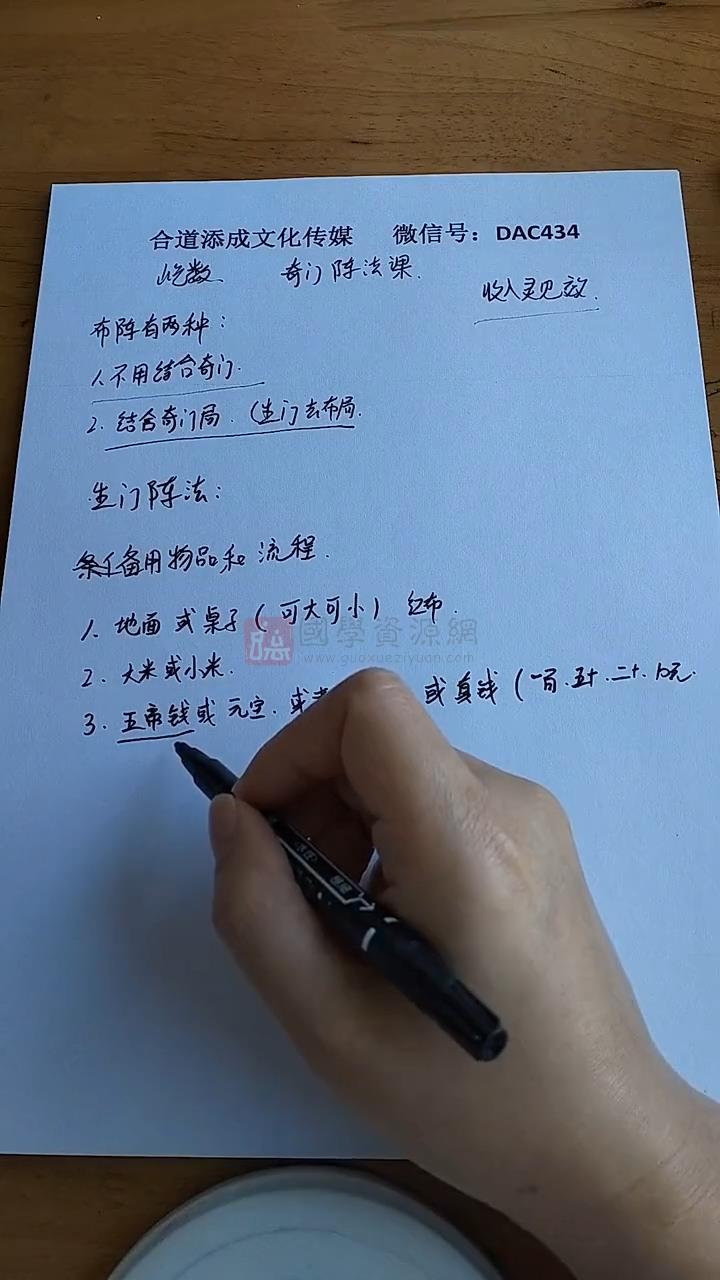 合道添成文化传媒 微信号：DAC434
屹数 奇门阵法课.
收入灵见效.
布阵有两种：
1.不用结合奇门.
2.结合奇门局.(生门去布局.
生门阵法：
备用物品和流程.
1.地面或桌子(可大可小) 红布.
國學資源網
www.guoxueziyuan.com
2.大米或小米.
3.五帝钱或元宝.或 或真钱(一百.五十.二十.10元.